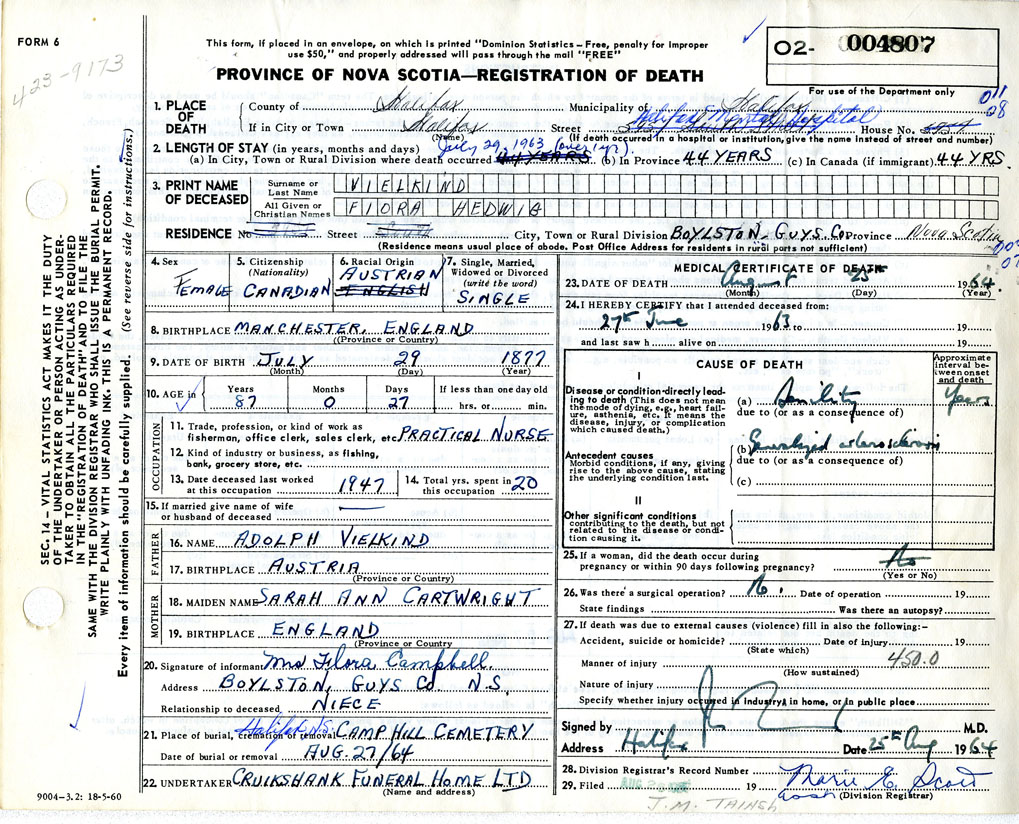 FORM 6
423-9173
This form, if placed in an envelope, on which is printed "Dominion Statistics – Free, penalty for improper
use $50," and properly addressed will pass through the mail "FREE"
PROVINCE OF NOVA SCOTIA—REGISTRATION OF DEATH
02- 004807
For use of the Department only
011
08
SEC. 14 – VITAL STATISTICS ACT MAKES IT THE DUTY
OF THE UNDERTAKER OR PERSON ACTING AS UNDER-
TAKER TO OBTAIN ALL THE PARTICULARS REQUIRED
IN THE "REGISTRATION OF DEATH" AND TO FILE THE
SAME WITH THE DIVISION REGISTRAR WHO SHALL ISSUE THE BURIAL PERMIT.
WRITE PLAINLY WITH UNFADING INK. THIS IS A PERMANENT RECORD.
Every item of information should be carefully supplied. (See reverse side for instructions.)
1. PLACE OF DEATH
County of Halifax Municipality of Halifax
If in City or Town Halifax Street Halifax Mental Hospital House No.
(Name) (If death occurred in a hospital or institution, give the name instead of street and number)
2. LENGTH OF STAY (in years, months and days) July 29, 1963 (over 1 yr.)
(a) In City, Town or Rural Division where death occurred 44 YEARS (b) In Province 44 YEARS (c) In Canada (if immigrant) 44 YRS.
3. PRINT NAME OF DECEASED
Surname or Last Name VIELKIND
All Given or Christian Names FLORA HEDWIG
RESIDENCE No. Street City, Town or Rural Division BOYLSTON, GUYS Co Province Nova Scotia
(Residence means usual place of abode. Post Office Address for residents in rural parts not sufficient)
4. Sex FEMALE
5. Citizenship (Nationality) CANADIAN
6. Racial Origin AUSTRIAN ENGLISH
7. Single, Married, Widowed or Divorced (write the word) SINGLE
8. BIRTHPLACE MANCHESTER, ENGLAND
(Province or Country)
9. DATE OF BIRTH JULY 29 1877
(Month) (Day) (Year)
10. AGE in Years 87 Months 0 Days 27 If less than one day old hrs. or min.
OCCUPATION
11. Trade, profession, or kind of work as
fisherman, office clerk, sales clerk, etc. PRACTICAL NURSE
12. Kind of industry or business, as fishing,
bank, grocery store, etc.
13. Date deceased last worked at this occupation 1947
14. Total yrs. spent in this occupation 20
15. If married give name of wife
or husband of deceased —
FATHER
16. NAME ADOLPH VIELKIND
17. BIRTHPLACE AUSTRIA
(Province or Country)
MOTHER
18. MAIDEN NAME SARAH ANN CARTWRIGHT
19. BIRTHPLACE ENGLAND
(Province or Country)
20. Signature of informant Mrs Flora Campbell.
Address BOYLSTON, GUYS Co N.S.
Relationship to deceased NIECE
21. Place of burial, cremation or removal Halifax N.S. CAMP HILL CEMETERY
Date of burial or removal AUG. 27/64
22. UNDERTAKER CRUIKSHANK FUNERAL HOME LTD
(Name and address)
9004-3.2: 18-5-60
MEDICAL CERTIFICATE OF DEATH
23. DATE OF DEATH August 25th 1964
(Month) (Day) (Year)
24. I HEREBY CERTIFY that I attended deceased from:
27th June 1963 to 19
and last saw h alive on 19
CAUSE OF DEATH
Approximate interval between onset and death
I
Disease or condition directly lead-
ing to death (This does not mean
the mode of dying, e.g., heart fail-
ure, asthenia, etc. It means the
disease, injury, or complication
which caused death.)
(a) Senility Years
due to (or as a consequence of)
Antecedent causes
Morbid conditions, if any, giving
rise to the above cause, stating
the underlying condition last.
(b) Generalized arteriosclerosis
due to (or as a consequence of)
(c)
II
Other significant conditions
contributing to the death, but not
related to the disease or condi-
tion causing it.
25. If a woman, did the death occur during
pregnancy or within 90 days following pregnancy? No
(Yes or No)
26. Was there a surgical operation? No. Date of operation 19
State findings Was there an autopsy?
27. If death was due to external causes (violence) fill in also the following:–
Accident, suicide or homicide? Date of injury 19
(State which)
Manner of injury 450.0
(How sustained)
Nature of injury
Specify whether injury occurred in industry, in home, or in public place
Signed by M.D.
Address Halifax Date 25th Aug 1964
28. Division Registrar's Record Number
29. Filed 19 Marie E. Scott
(Division Registrar)
J.M. TAINSH